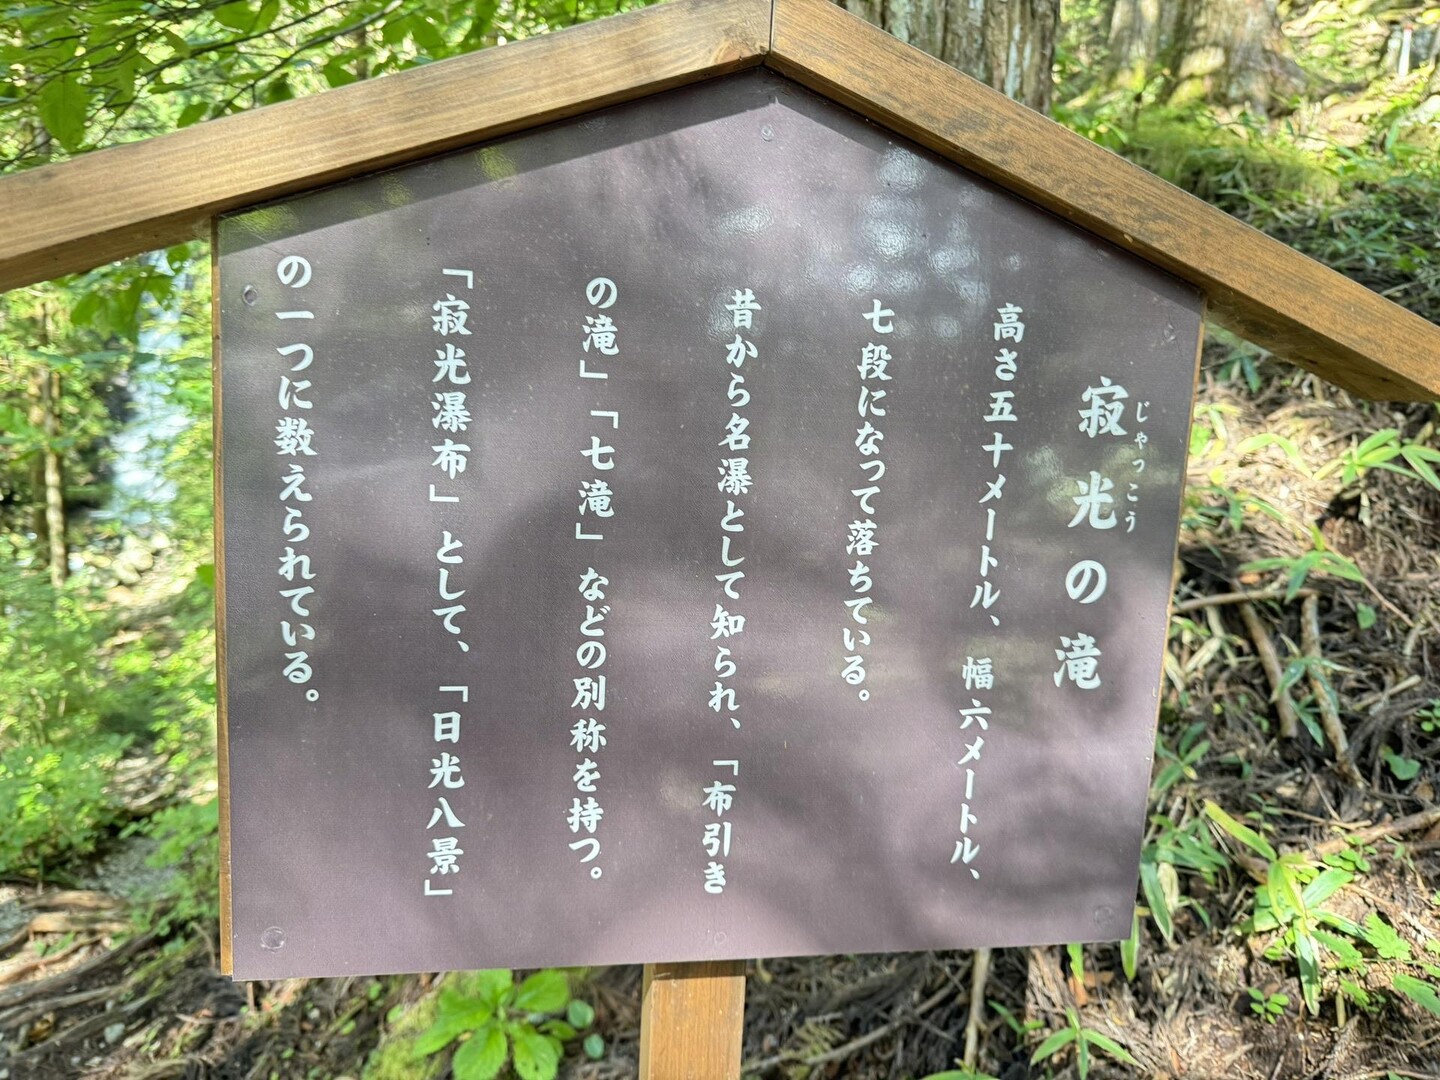 寂光の滝
じゃっこう
高さ五十メートル、幅六メートル、
七段になって落ちている。
昔から名瀑として知られ、「布引き
の滝」「七滝」などの別称を持つ。
「寂光瀑布」として、「日光八景」
の一つに数えられている。